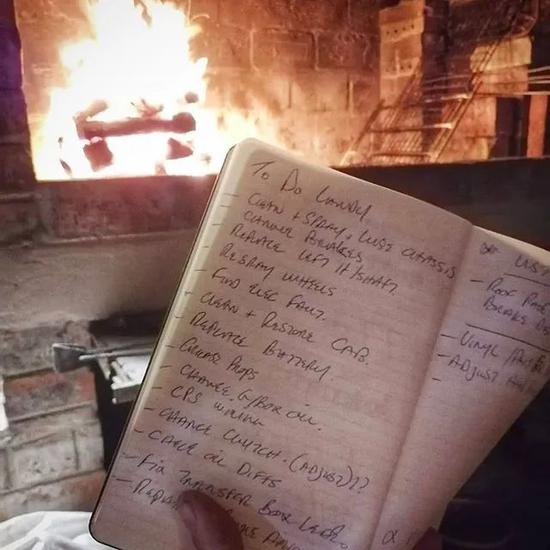 To Do Landy
- Clean + Spray + Lust Chassis
- Change Brakes
- Replace Left H/Shaft
- Respray Wheels
- Find Elec Fault.
- Clean + Restore Cab.
- Replace Battery.
- Grease Props
- Change G/Box oil.
- CPS Wiring
- Change Clutch. (Adjust)??
- Check oil Diffs
- Fix Transfer Box Leaks
- Vinyl
- Adjust